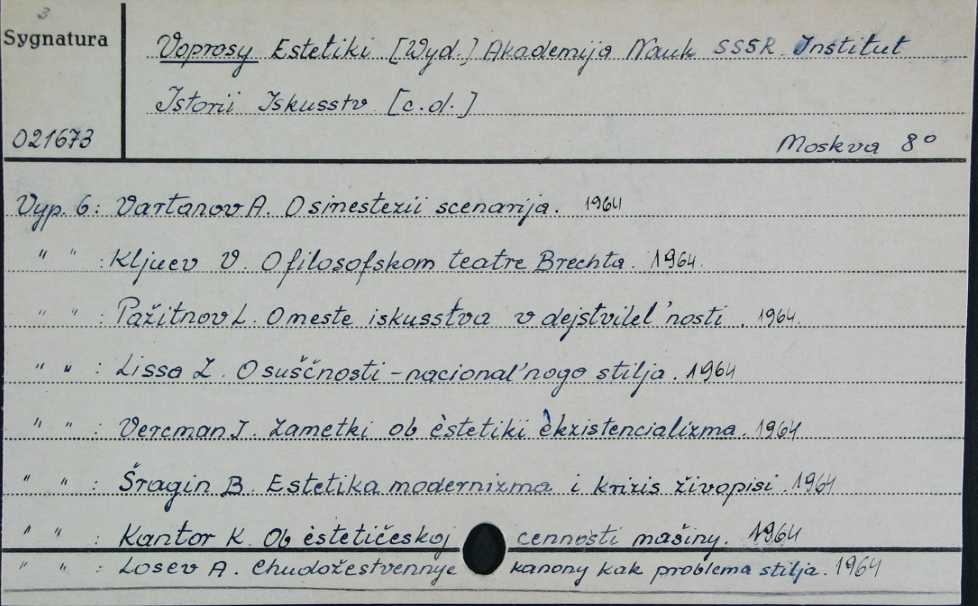 3
Sygnatura
Voprosy Estetiki [Wyd.] Akademija Nauk SSSR. Institut
Istorii Iskusstv [c.d.]
021673
Moskva 8°
Vyp. 6: Vartanov A. O sinestezii scenarija. 1964
" " : Kljuev V. O filosofskom teatre Brechta. 1964.
" " : Pažitnov L. O meste iskusstva v dejstvitel'nosti. 1964.
" " : Lissa Z. O suščnosti - nacional'nogo stilja. 1964
" " : Vercman I. Zametki ob èstetiki èkzistencializma. 1964
" " : Šragin B. Estetika modernizma i krizis živopisi. 1964
" " : Kantor K. Ob èstetičeskoj cennosti mašiny. 1964
" " : Losev A. Chudožestvennye kanony kak problema stilja. 1964